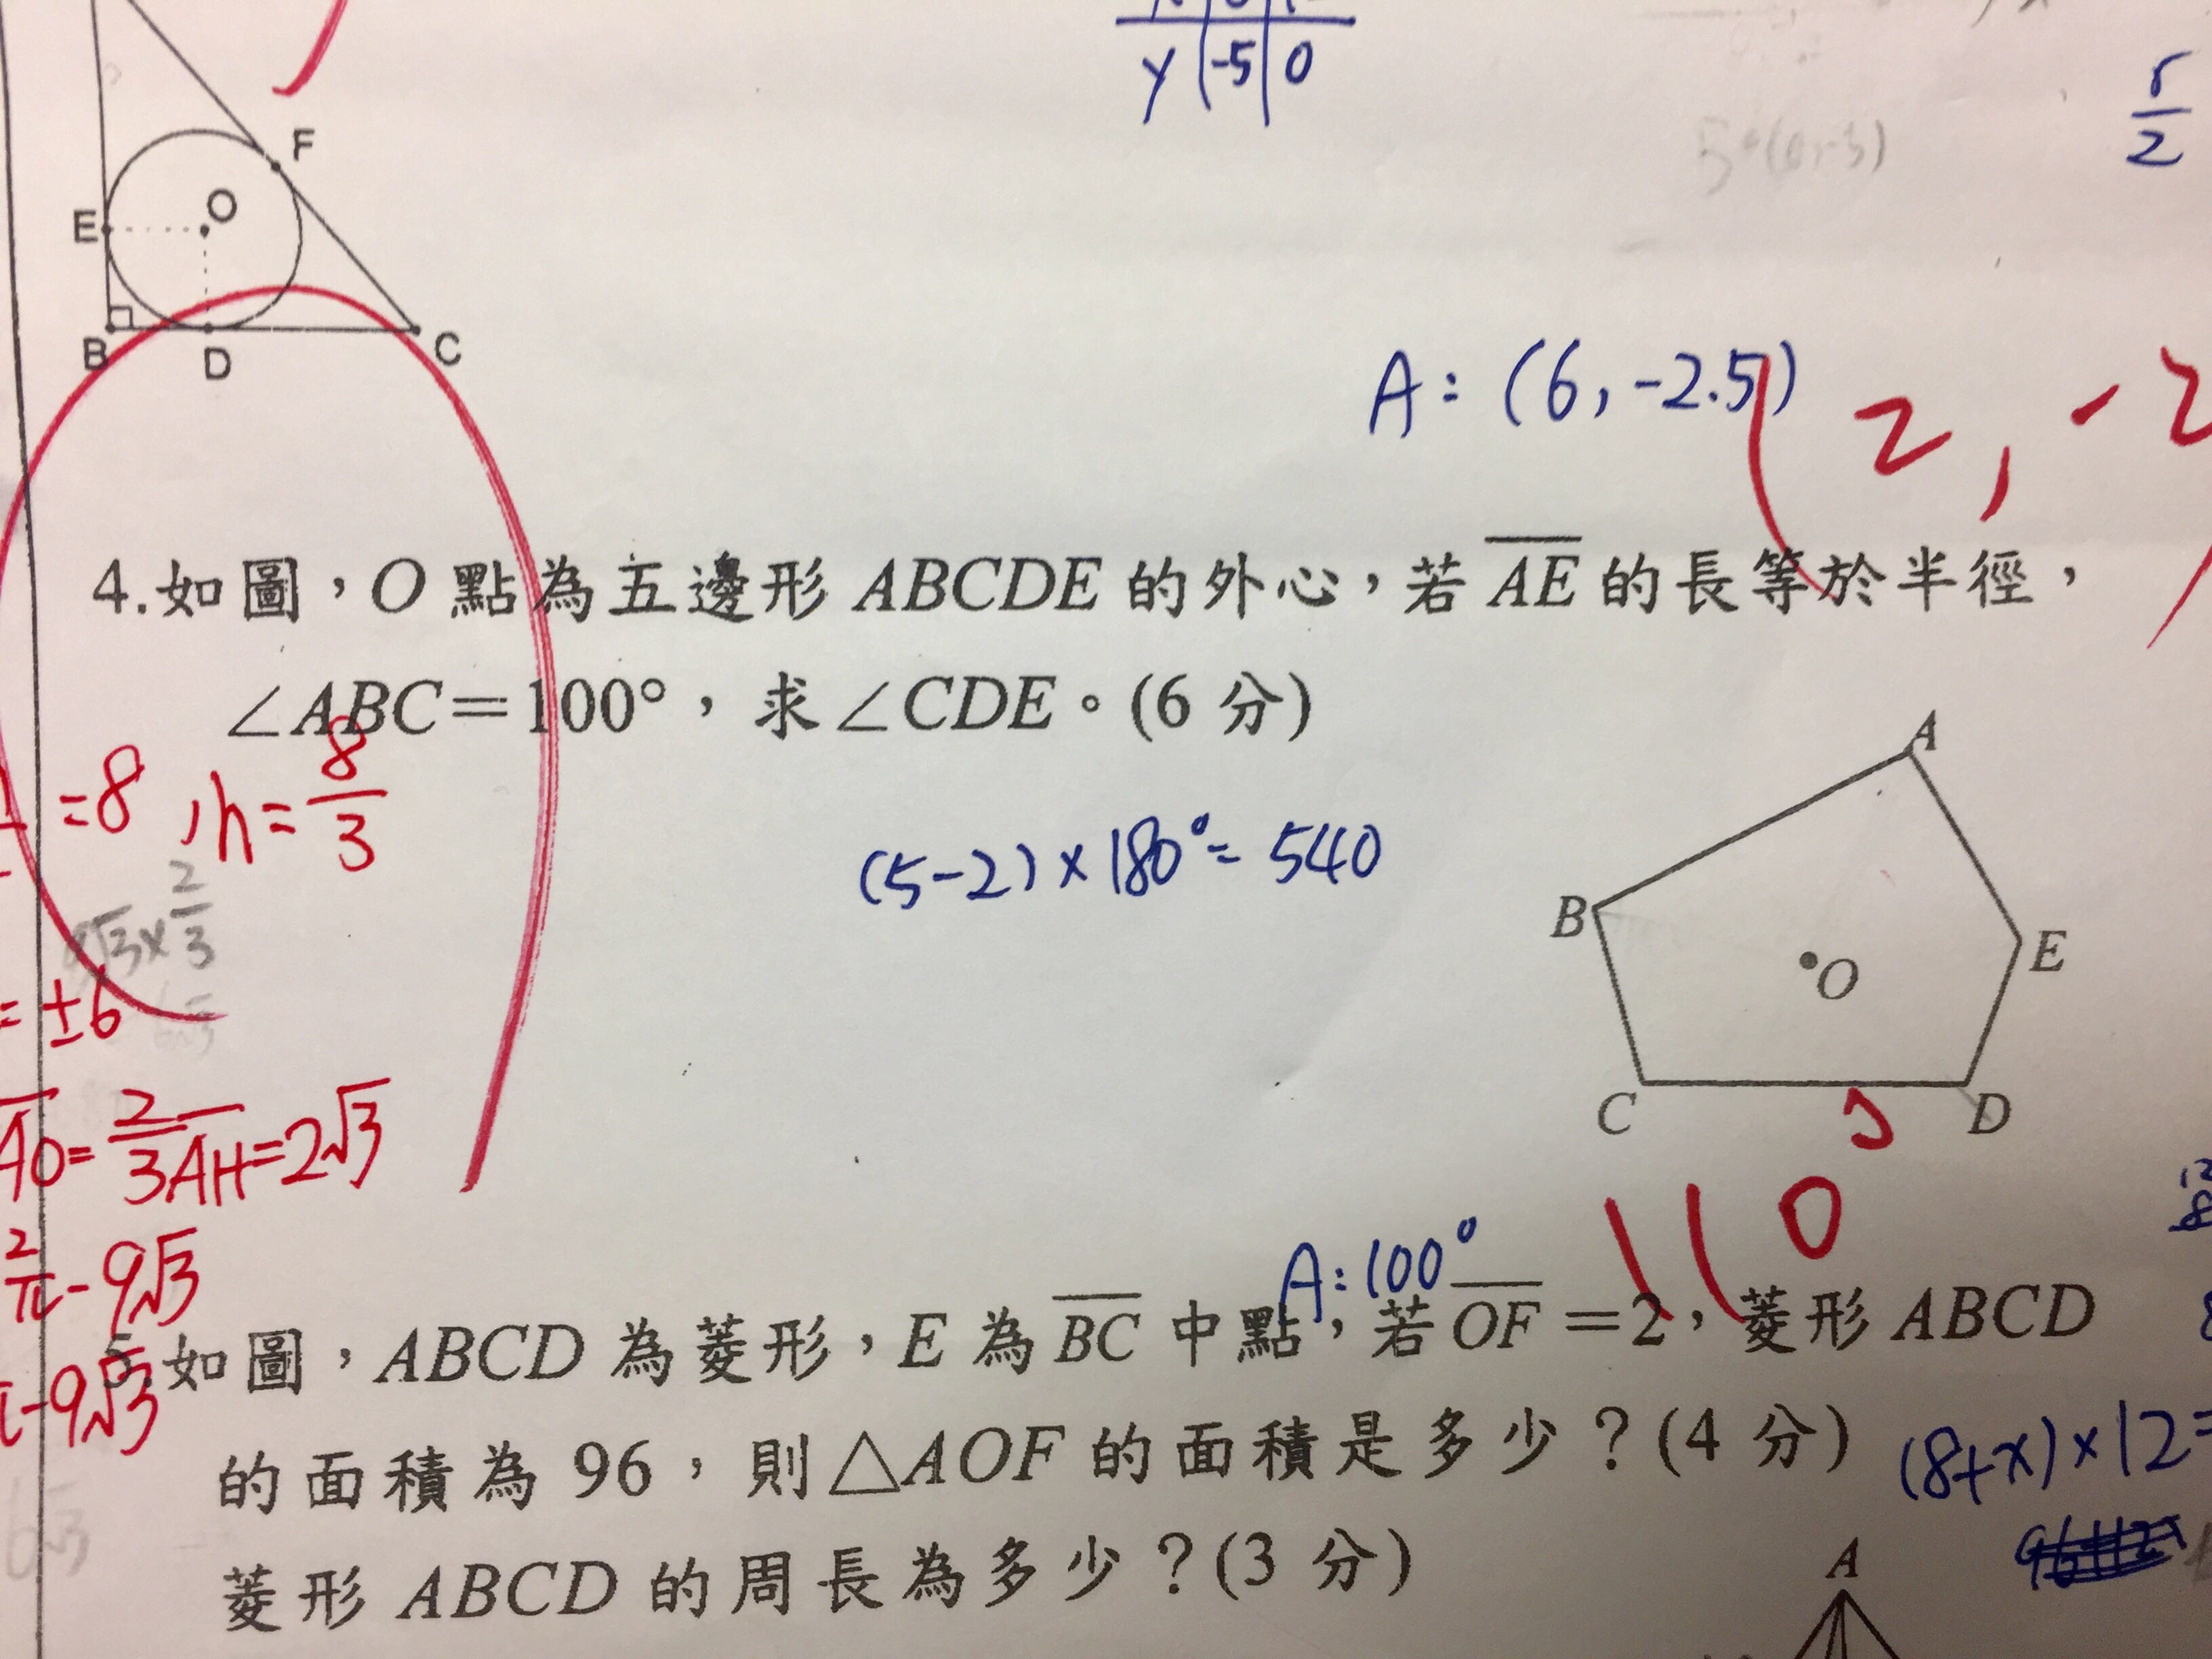 y -5 0
5
2
F
O
E
B
D
C
A: (6, -2.5)
(2, -2
4.如圖，O 點為五邊形 ABCDE 的外心，若 AE 的長等於半徑，
∠ABC＝100°，求∠CDE。(6 分)
=8 , h= 8/3
√3× 2/3
(5-2)×180°= 540
A
B
E
O
C
D
= ±6
AO= 2/3 AH=2√3
110
A: 100°
π- 9√3
5.如圖，ABCD 為菱形，E 為 BC 中點，若 OF =2，菱形 ABCD
-9√3
的面積為 96，則△AOF 的面積是多少？(4 分)
(8+x)×12=
6√3
菱形 ABCD 的周長為多少？(3 分)
A